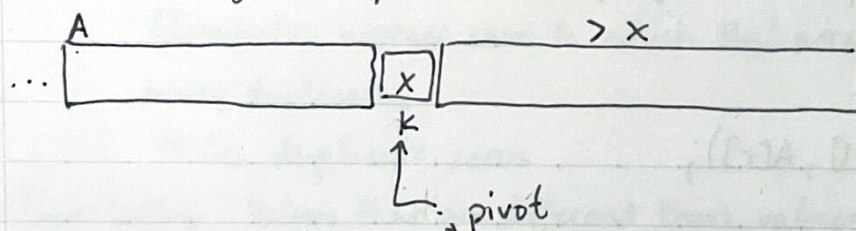 A > x
... x
K
pivot